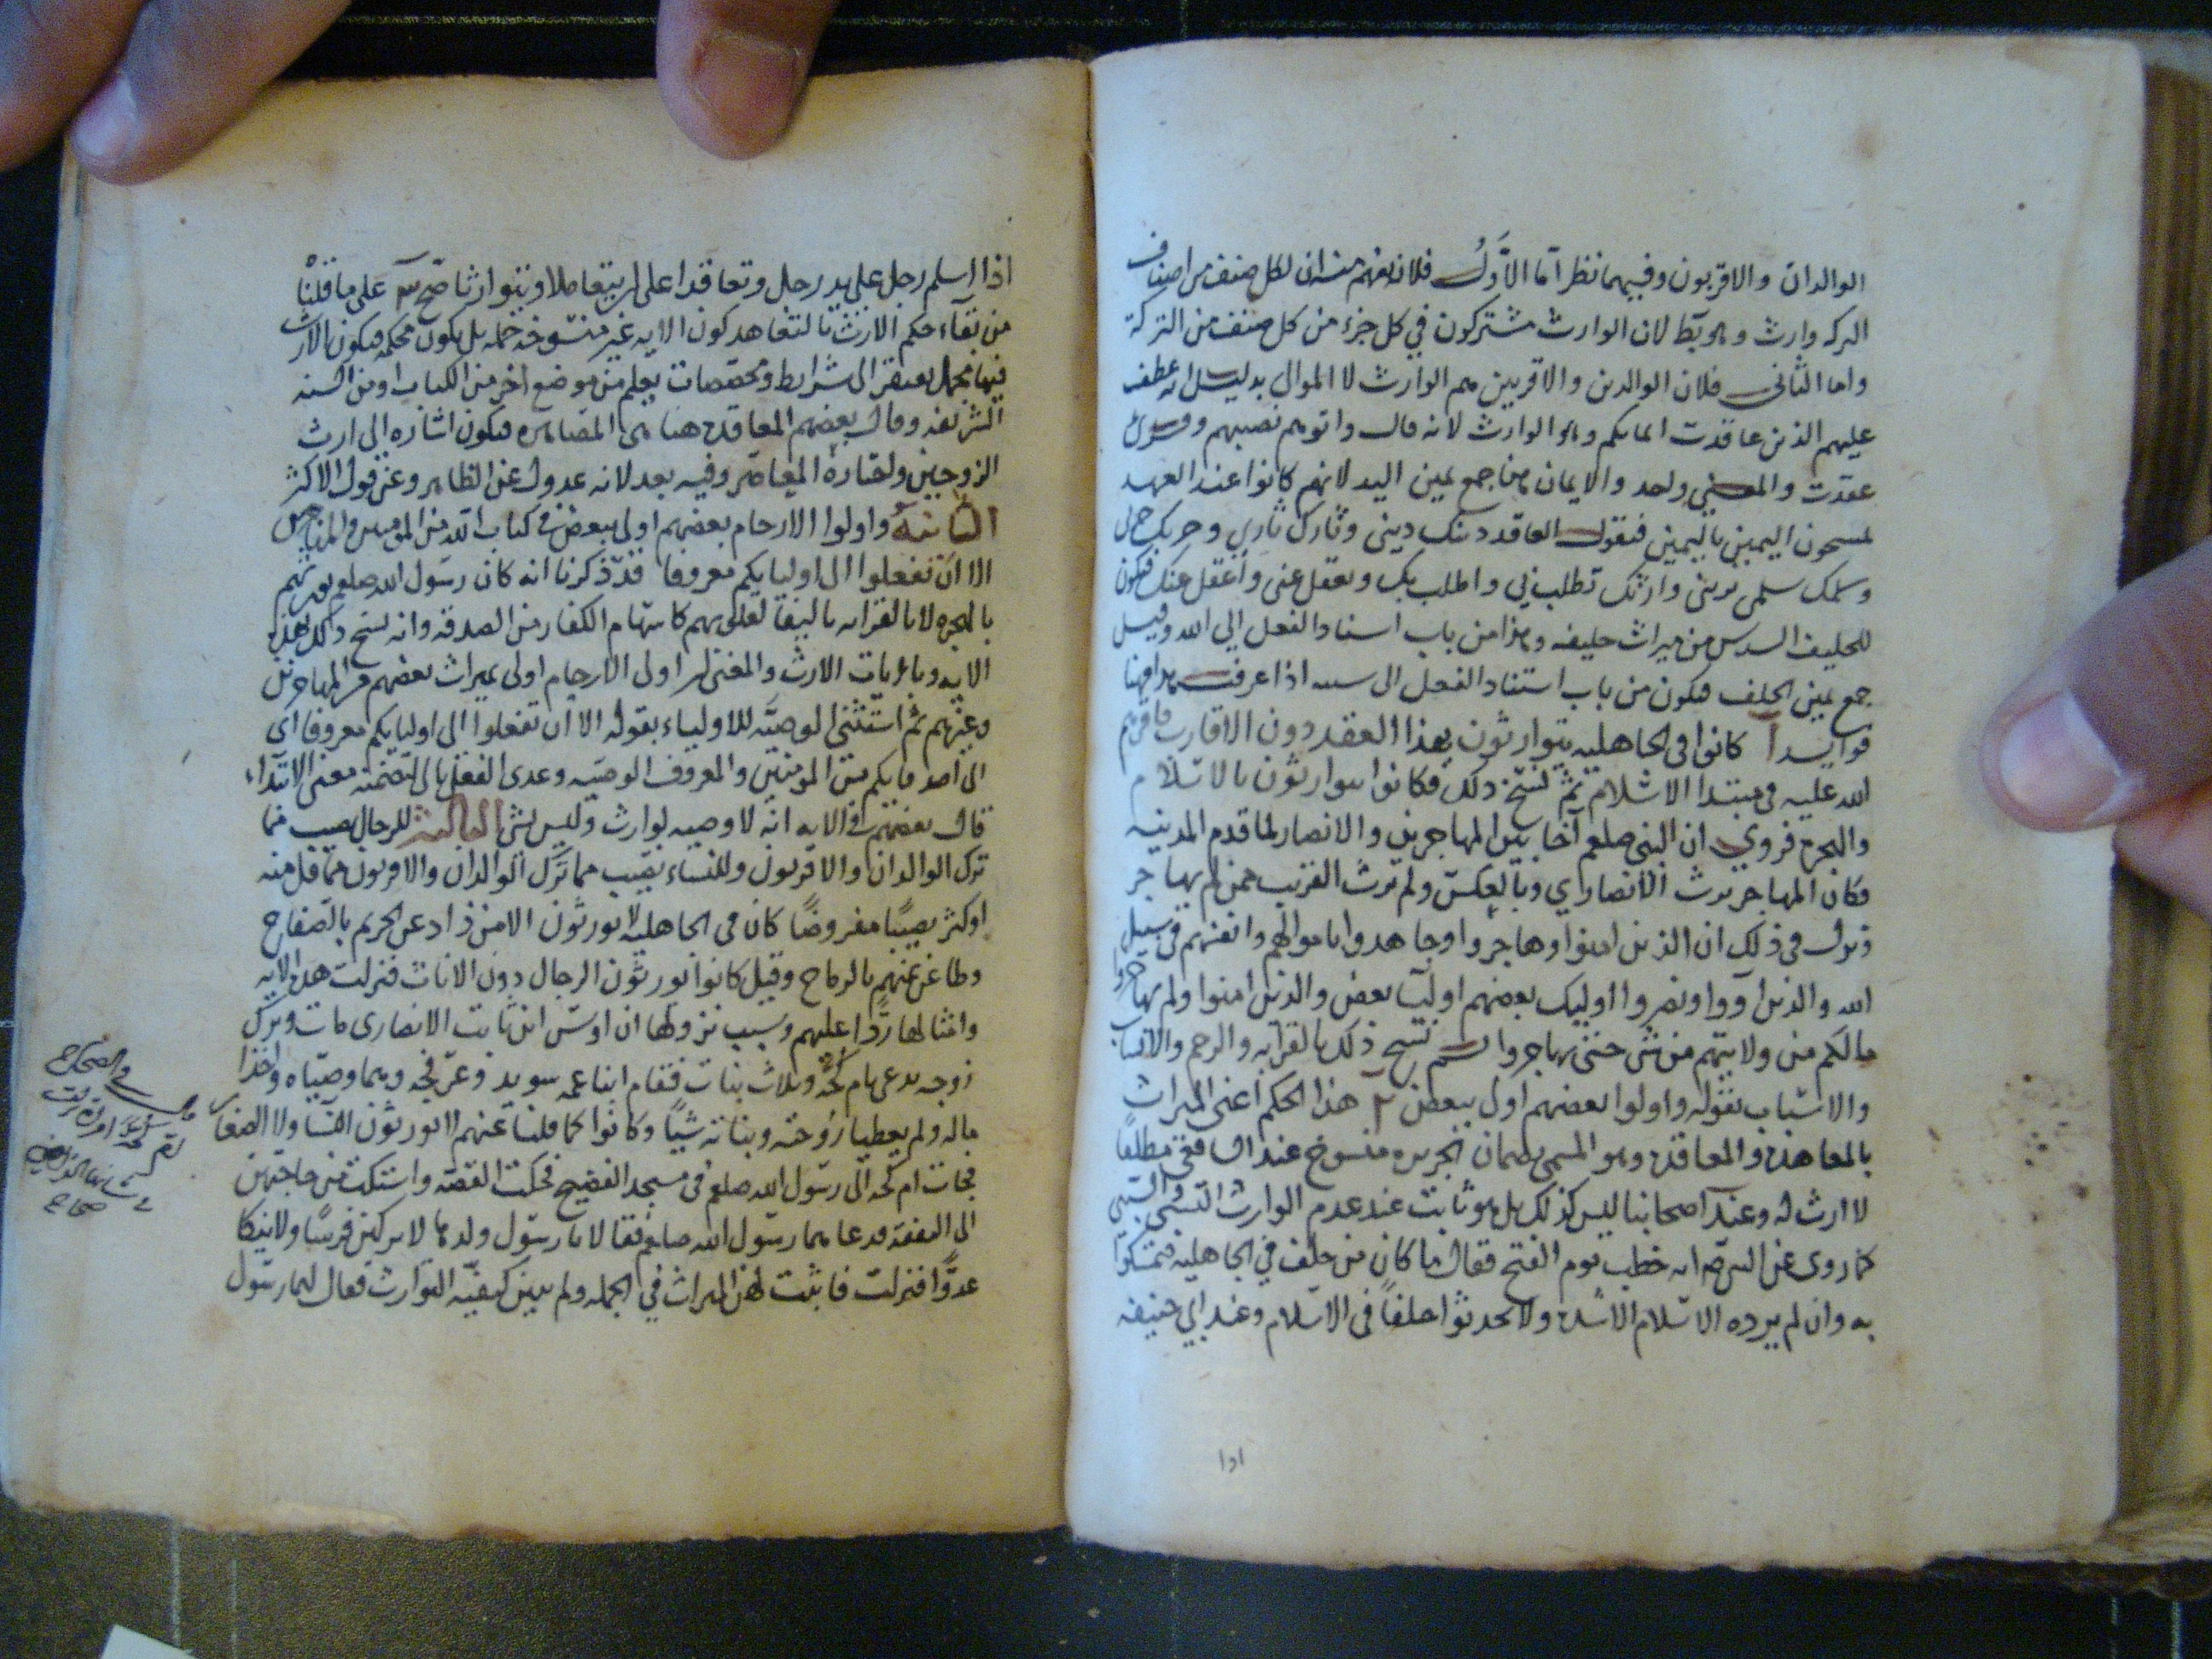 الوالدان والاقربون وفيهما نظر اما الاول فلانه يفهم منه ان لكل صنف من اصناف
التركه وارث وهو بط لان الوارث مشتركون في كل جزء من كل صنف من التركة
واما الثاني فلان الوالدين والاقربين هم الوارث لا الموالي بدليل انه عطف
عليهم الذين عاقدت ايمانكم وهو الوارث لانه قال واتوهم نصيبهم وقرئ
عقدت والمعنى واحد والايمان هنا جمع يمين اليد لانهم كانوا عند العهد
يمسحون اليمين باليمين فيقول العاقد دينك ديني وثارك ثاري وحربك حربي
وسلمك سلمي ترثني وارثك تطلب بي واطلب بك وتعقل عني واعقل عنك فيكون
للحليف السدس من ميراث حليفه وهذا من باب اسناد الفعل الى الله وقيل
جمع يمين الحلف فيكون من باب استناد الفعل الى سببه اذا عرفت هذا فهنا
فوايد آ كانوا في الجاهلية يتوارثون بهذا العقد دون الاقارب فاقرهم
الله عليه في مبتدا الاسلام ثم نسخ ذلك فكانوا يتوارثون بالاسلام
والهجرة فروي ان النبي صلعم آخا بين المهاجرين والانصار لما قدم المدينه
فكان المهاجر يرث الانصاري وبالعكس ولم يرث القريب ممن لم يهاجر
ونزل في ذلك ان الذين امنوا وهاجروا وجاهدوا باموالهم وانفسهم في سبيل
الله والذين آووا ونصروا اوليك بعضهم اوليآ بعض والذين امنوا ولم يهاجروا
مالكم من ولايتهم من شي حتى يهاجروا ثم نسخ ذلك بالقرابه والرحم والانساب
والاسباب بقوله واولوا بعضهم اولى ببعض ٢ هذا الحكم اعني الميراث
بالمعاهدة والمعاقدة وهو المسمى بضمان الجريره منسوخ عند الشافعي مطلقا
لا ارث له وعند اصحابنا ليس كذلك بل هو ثابت عند عدم الوارث النسبي والسببي
كما روى عن النبي صم انه خطب يوم الفتح فقال ما كان من حلف في الجاهلية فتمسكوا
به وان لم يرده الاسلام الا شدة ولا تحدثوا حلفاً في الاسلام وعند ابي حنيفه
اذا
اذا اسلم رجل على يد رجل وتعاقدا على ان يتعاقلا ويتوارثا صح على ما قلناه
من بقاء حكم الارث بالتعاهد كون الايه غير منسوخه جمله بل يكون محكمة فيكون الارث
فيها مجمل يفتقر الى شرايط ومخصصات يعلم من موضع اخر من الكتاب او من السنه
الشريفه وقال بعضهم المعاقدة هنا هي المصاهره فيكون اشاره الى ارث
الزوجين واختاره المعاصر وفيه بعد لانه عدول عن الظاهر وعن قول الاكثر
الثانية واولوا الارحام بعضهم اولى ببعض في كتاب الله من المومنين والمهاجرين
الا ان تفعلوا الى اوليايكم معروفا قد ذكرنا انه كان رسول الله صلعم يورثهم
بالهجره لا بالقرابه كاسهام الكفار من الصدقه وانه نسخ ذلك بهذه
الايه وبايات الارث والمعنى ان اولى الارحام اولى بميراث بعضهم من المهاجرين
وغيرهم ثم استثنى الوصيه للاولياء بقوله الا ان تفعلوا الى اوليايكم معروفا اي
الى اصدقايكم من المومنين والمعروف الوصيه وعدى الفعل بالى لتضمنه معنى الابتداء
قال بعضهم في الايه انه لا وصيه لوارث وليس بشي الثالثة للرجال نصيب مما
ترك الوالدان والاقربون وللنساء نصيب مما ترك الوالدان والاقربون مما قل منه
او كثر نصيبًا مفروضًا كان في الجاهلية لا يورثون الا من ذاد عن الحريم بالصفاح
وطاعن عنهم بالرماح وقيل كانوا يورثون الرجال دون الاناث فنزلت هذه الايه
وامثالها ردًا عليهم وسبب نزولها ان اوس ابن ثابت الانصاري مات وترك
زوجه تدعى ام كحة وثلاث بنات فقام ابنا عمه سويد وعرفجه وهما وصياه واخذا
ماله ولم يعطيا زوجته وبناته شيئًا وكانوا كما قلنا عنهم لا يورثون النسا ولا الصغار
فجات ام كحه الى رسول الله صلعم في مسجد الفضيخ فحكت القصه واشتكت من حاجتهن
الى النفقة فدعاهما رسول الله صلعم فقالا يا رسول ولدها لا يركبن فرسًا ولا ينكا
عدوًا فنزلت فاثبت لهن الميراث في الجمله ولم يبين كيفيه التوارث فقال لهما رسول
في الصحاح
صحاح